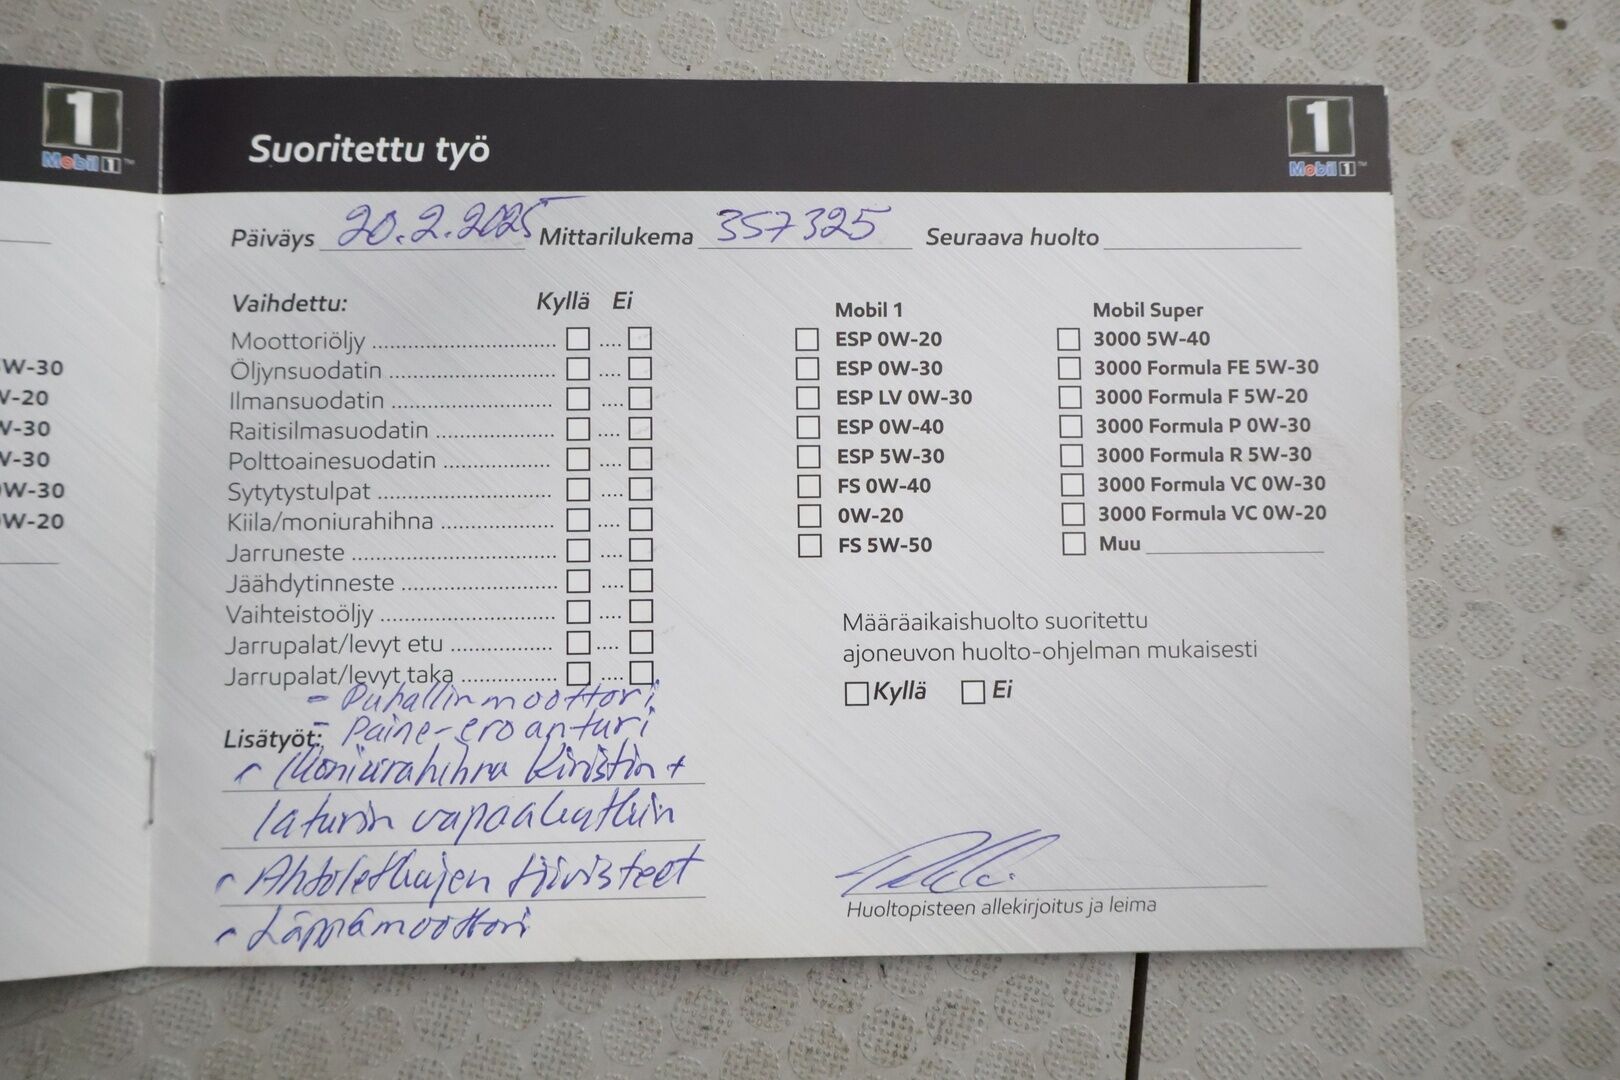 1
Mobil 1™
W-30
W-20
W-30
W-30
0W-30
0W-20
Suoritettu työ
1
Mobil 1™
Päiväys 20.2.2025 Mittarilukema 357325 Seuraava huolto
Vaihdettu: Kyllä Ei
Moottoriöljy
Öljynsuodatin
Ilmansuodatin
Raitisilmasuodatin
Polttoainesuodatin
Sytytystulpat
Kiila/moniurahihna
Jarruneste
Jäähdytinneste
Vaihteistoöljy
Jarrupalat/levyt etu
Jarrupalat/levyt taka
- Puhallinmoottori
- Paine-eroanturi
Lisätyöt:
- Moniurahihna kiristin +
laturin vapaakytkin
- Ahtoletkujen tiivisteet
- Läppämoottori
Mobil 1
ESP 0W-20
ESP 0W-30
ESP LV 0W-30
ESP 0W-40
ESP 5W-30
FS 0W-40
0W-20
FS 5W-50
Mobil Super
3000 5W-40
3000 Formula FE 5W-30
3000 Formula F 5W-20
3000 Formula P 0W-30
3000 Formula R 5W-30
3000 Formula VC 0W-30
3000 Formula VC 0W-20
Muu
Määräaikaishuolto suoritettu
ajoneuvon huolto-ohjelman mukaisesti
Kyllä Ei
Huoltopisteen allekirjoitus ja leima